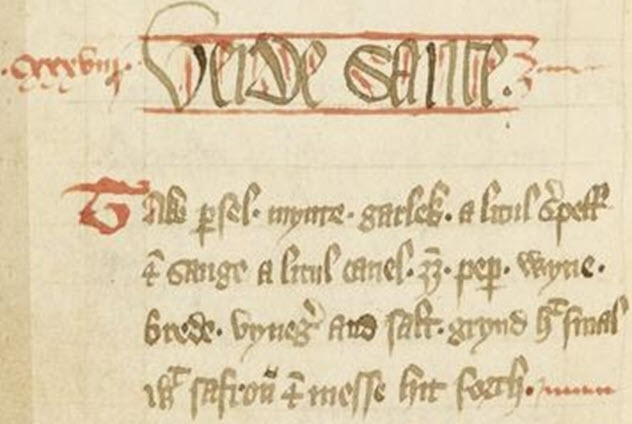 .cxxxviij. Verde sause.
Tak psel. mynte. garlek. a litul s̉pell
⁊ sauge a litul canel. gȝ. pep. wyne.
brede. vyneg̉ and salt. grynd hͭ smal
wͭ safroū ⁊ messe hit forth.